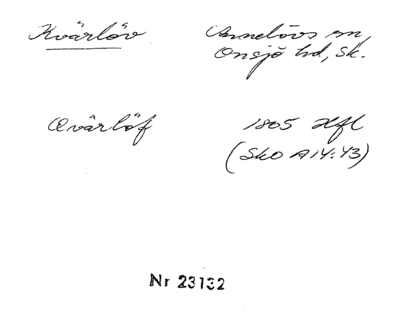 Kvärlöv
Annelövs sn,
Onsjö hd, Sk.
Qvärlöf
1805 Hfl
(Sko A14:43)
Nr 23132